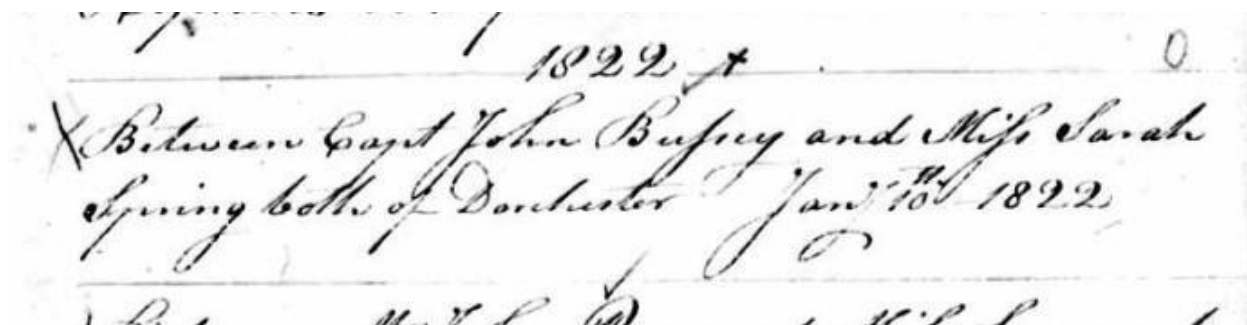 1822
Between Capt John Bussey and Miss Sarah
Spring both of Dorchester Jany 10th 1822